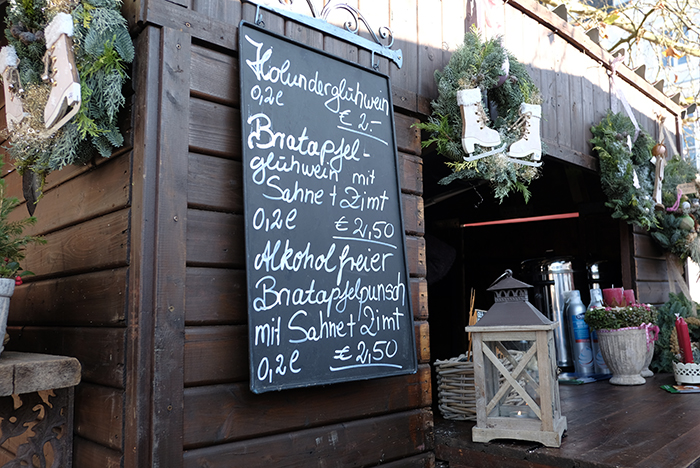 Holunderglühwein
0,2l € 2.-
Bratapfel-
glühwein mit
Sahne + Zimt
0,2l € 2,50
Alkoholfreier
Bratapfelpunsch
mit Sahne + Zimt
0,2l € 2,50